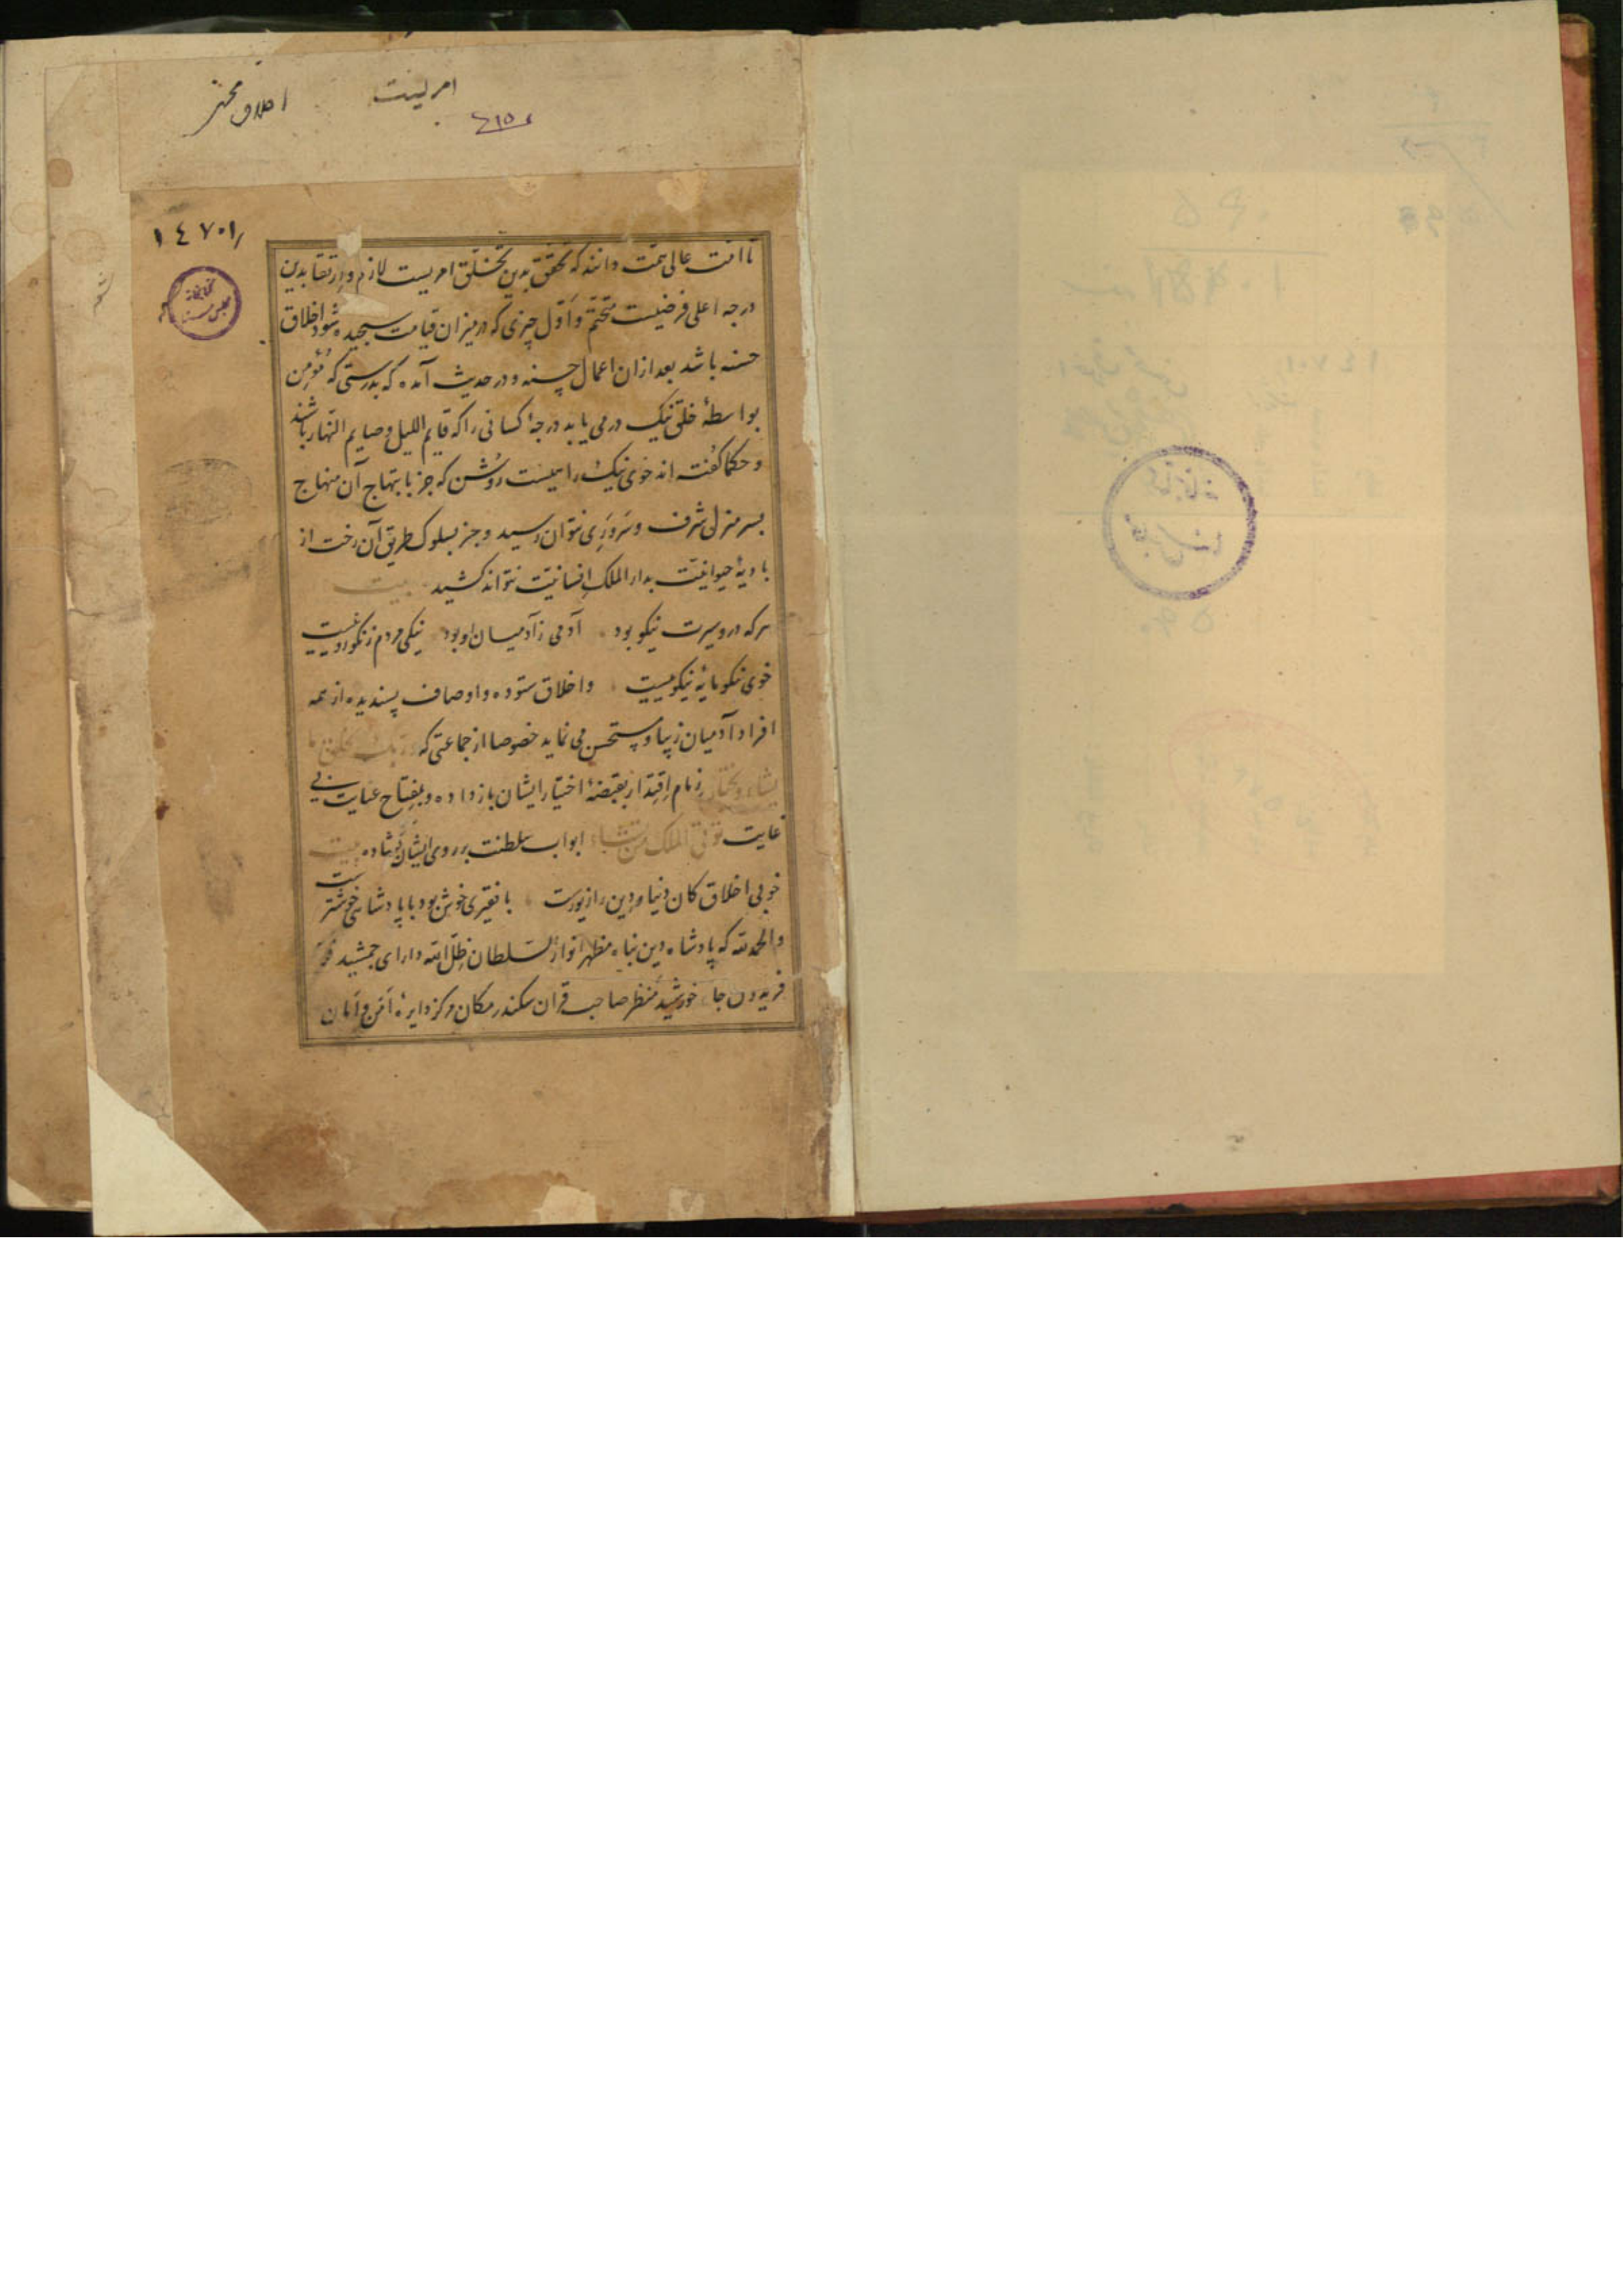 امریست
اخلاق محسنی
١٤٧٠١
تا امت عالی همت دانند که تحقق بدین تخلق امریست لازم و ارتقا بدین
درجه اعلی فرضیست متحتم و اول چیزی که در میزان قیامت سنجیده شود اخلاق
حسنه باشد بعد ازان اعمال حسنه و در حدیث آمده که بدرستی که مؤمن
بواسطهٔ خلق نیک در می یابد درجهٔ کسانی را که قایم اللیل و صایم النهار باشند
و حکما کفته اند خوی نیک راهیست روشن که جز بابتهاج آن منهاج
بسر منزل شرف و سروری نتوان رسید و جز بسلوک طریق آن رخت از
بادیهٔ حیوانیت بدار الملک انسانیت نتواند کشید بیت
هرکه درو سیرت نیکو بود آدمی زآدمیان او بود نیکی مردم نه نکو روییست
خوی نکو مایهٔ نیکوییست و اخلاق ستوده و اوصاف پسندیده از همه
افراد آدمیان زیبا و مستحسن می نماید خصوصا از جماعتی که و ربک یخلق ما
یشاء و یختار زمام اقتدار بقبضهٔ اختیار ایشان باز داده و بمفتاح عنایت بی
غایت تؤتی الملک من تشاء ابواب سلطنت بر روی ایشان کشاده بیت
خوبی اخلاق کان دنیا و دین را زیورست با فقیری خوش بود با پادشاهی خوشترست
و الحمد لله که پادشاه دین پناه مظهر انوار السلطان ظل الله دارای جمشید
فریدون جاه خورشید منظر صاحب قران سکندر مکان مرکز دایرهٔ امن و امان
کتابخانه
مجلس سنا